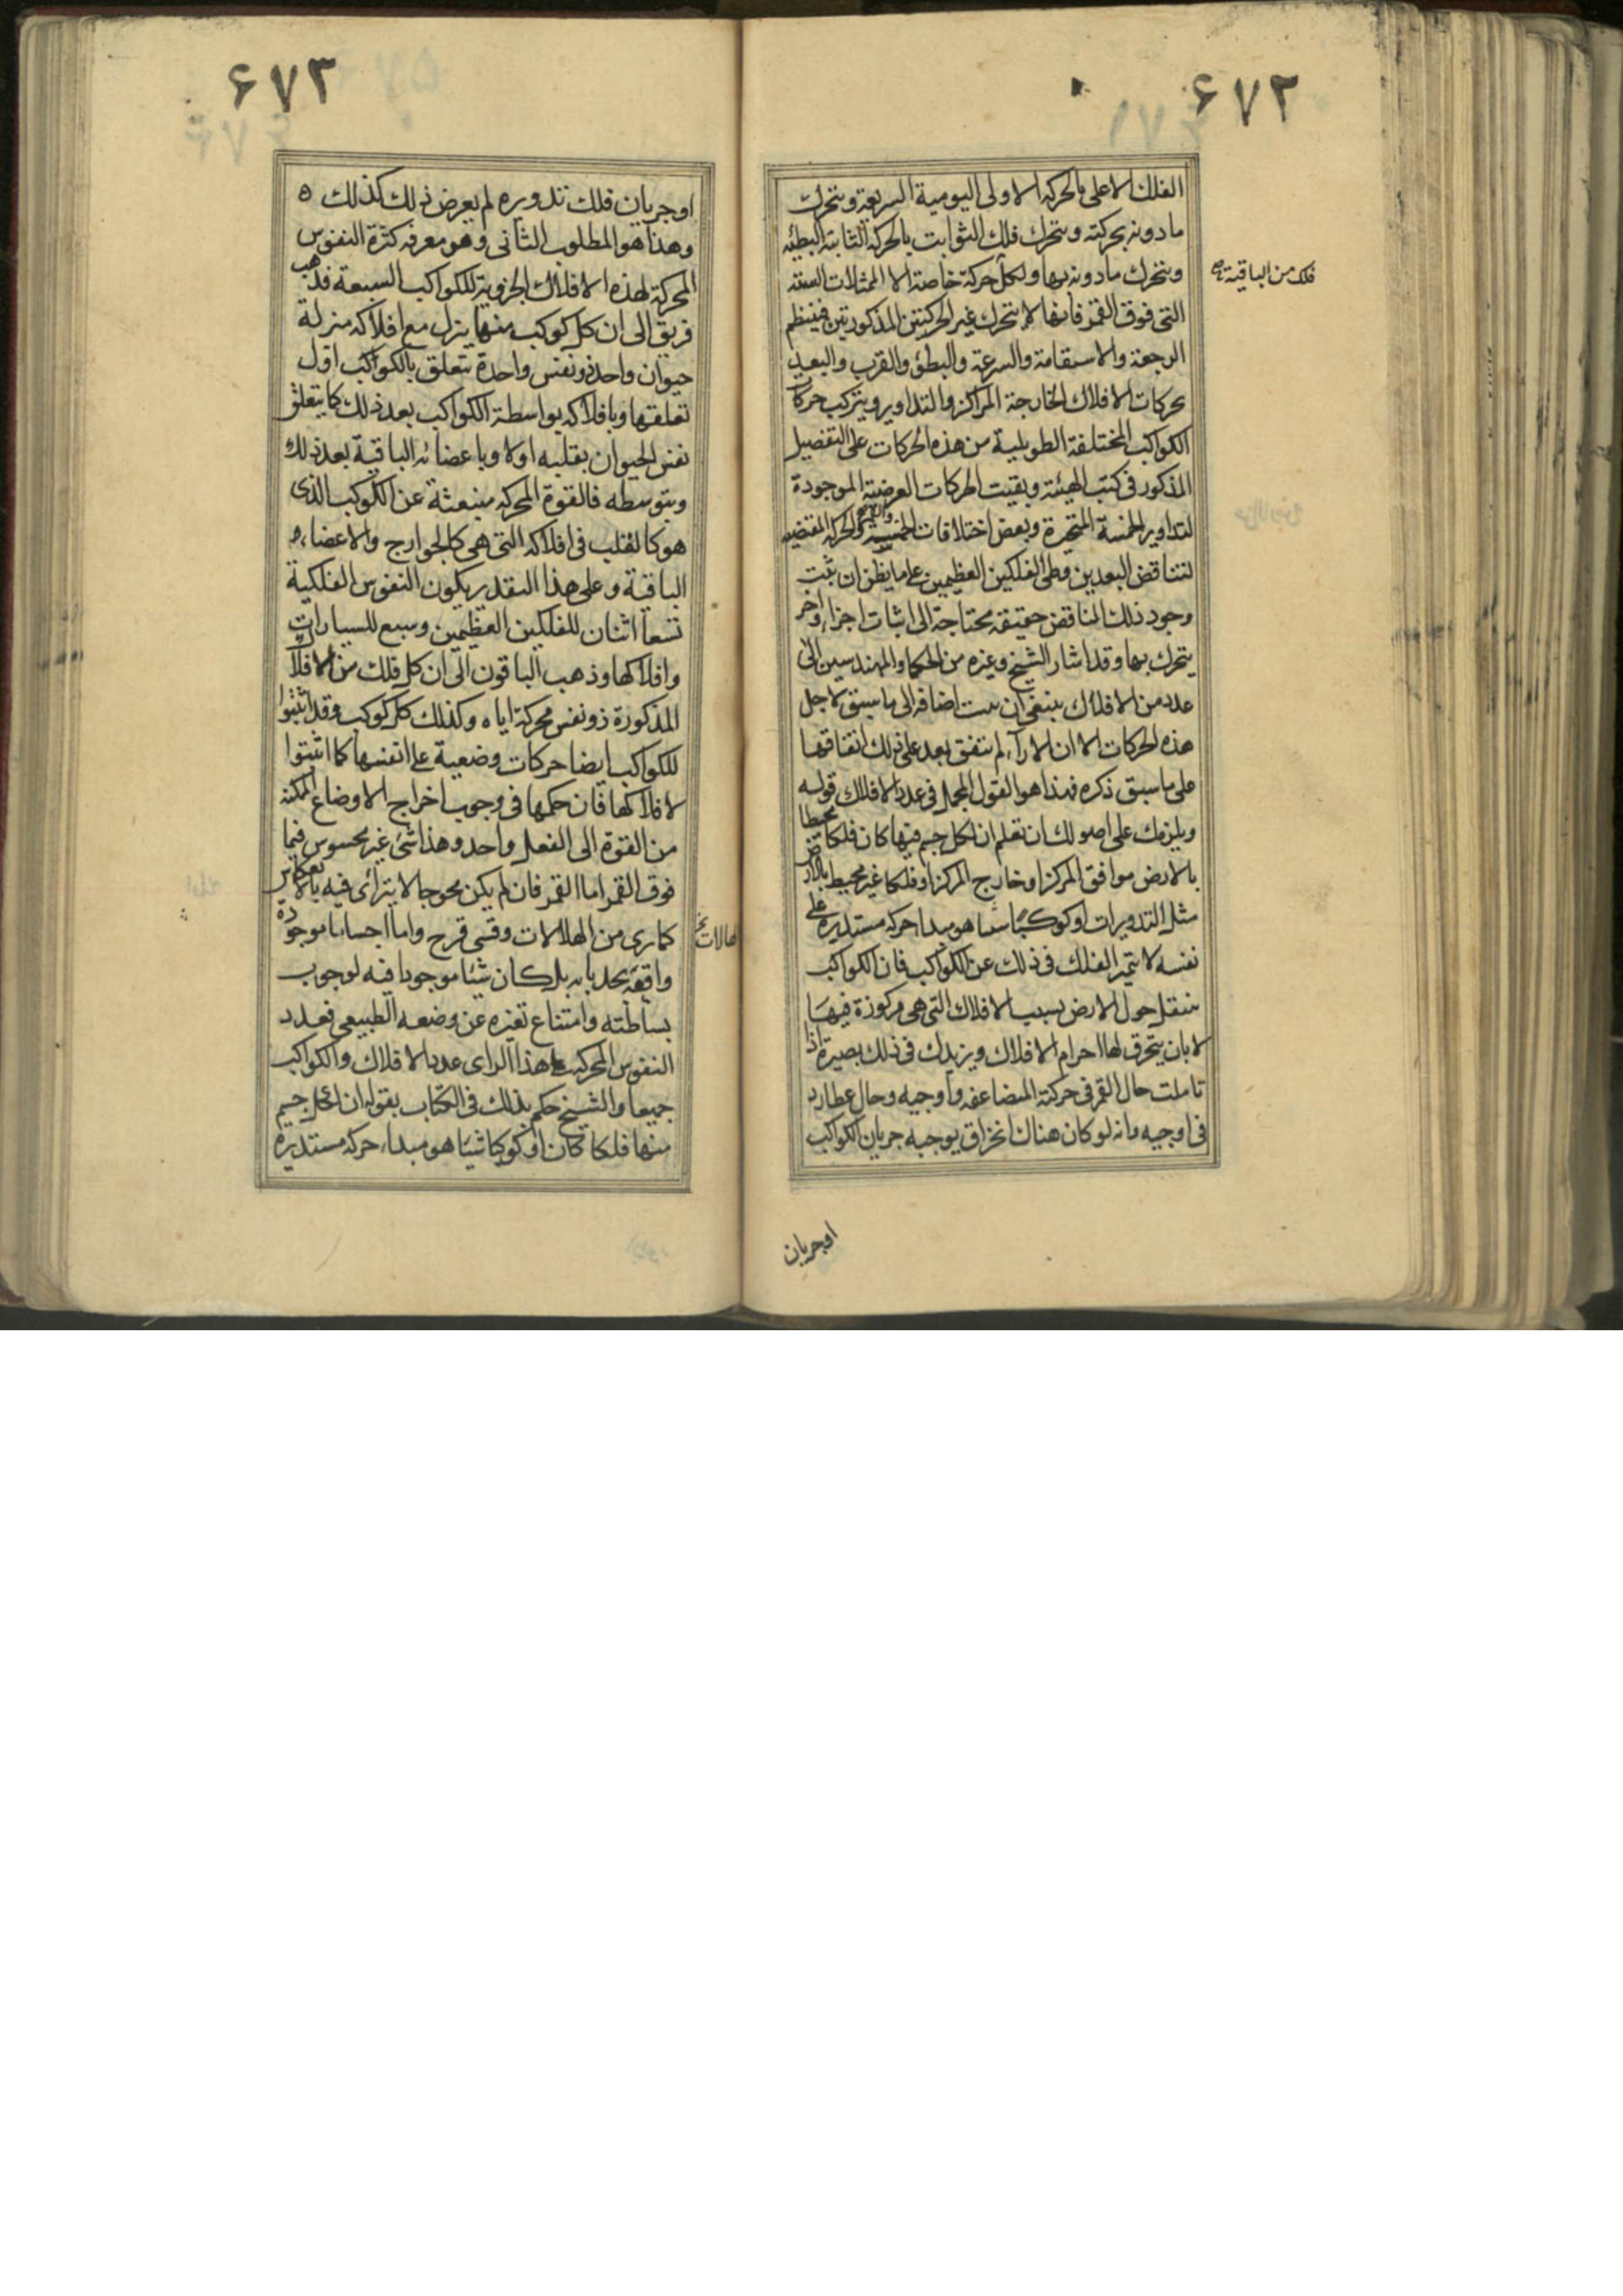 ٦٧٢
الفلك الاعلى بالحركه الاولى اليومية السريعة ويتحرك
ما دونه بحركته ويتحرك فلك الثوابت بالحركة الثانية البطيئه
ويتحرك ما دونه بها ولكل حركة خاصة الا الممثلات الستة
فلك من الباقية
التى فوق القمر فانها لا يتحرك غير الحركتين المذكورتين فينتظم
الرجعة والاستقامة والسرعة والبطؤ والقرب والبعد
بحركات الافلاك الخارجة المراكز والتداوير ويتركب حركات
الكواكب المختلفة الطويلية من هذه الحركات على التفصيل
المذكور فى كتب الهيئة وبقيت الحركات العرضية الموجودة
لتداوير الخمسة المتحيرة وبعض اختلافات الخمسة والحركة المقتضيه
لتناقض البعدين وطى الفلكين العظيمين على ما يظن ان ثبت
وجود ذلك التناقض حقيقه محتاجة الى اثبات اجزاء اخر
يتحرك بها وقد اشار الشيخ وغيره من الحكما والمهندسين الى
عدد من الافلاك ينبغى ان اضافه الى ما سبق لاجل
هذه الحركات الا ان الاراء لم يتفق بعد على ذلك اتفاقها
على ما سبق ذكره فهذا هو القول المجمل فى عدد الافلاك قوله
ويلزمك على اصولك ان تعلم ان لكل جسم فيها كان فلكا محيطا
بالارض موافق المركز او خارج المركز او فلكا غير محيط بالارض
مثل التدويرات او كوكبا شيئا هو مبدا حركه مستديرة على
نفسه لا يتميز الفلك فى ذلك عن الكواكب فان الكواكب
ينتقل حول الارض بسبب الافلاك التى هى مركوزة فيها
لا بان يتخرق لها اجرام الافلاك ويزيدك فى ذلك بصيرة اذا
تاملت حال القمر فى حركتة المضاعفه واوجيه وحال عطارد
فى اوجيه وانه لو كان هناك انخراق يوجبه جريان الكواكب
او جريان
٦٧٣
او جريان فلك تدويره لم يعرض ذلك كذلك ٥
وهذا هو المطلوب الثانى وهو معرفه كثرة النفوس
المحركة لهذه الافلاك الجزوية للكواكب السبعة فذهب
فريق الى ان كل كوكب منها ينزل مع افلاكه منزلة
حيوان واحد ذو نفس واحدة يتعلق بالكواكب اول
تعلقها وبافلاكه بواسطة الكواكب بعد ذلك كما يتعلق
نفس الحيوان بقلبه اولا وباعضائه الباقية بعد ذلك
وبتوسطه فالقوة المحركه منبعثة عن الكوكب الذى
هو كالقلب فى افلاكه التى هى كالجوارح والاعضاء
الباقية وعلى هذا التقدير يكون النفوس الفلكية
تسعا اثنان للفلكين العظيمين وسبع للسيارات
وافلاكها وذهب الباقون الى ان كل فلك من الافلاك
المذكورة ذو نفس محركة اياه وكذلك كل كوكب وقد اثبتوا
للكواكب ايضا حركات وضعية على انفسها كما اثبتوا
لافلاكها فان حكمها فى وجوب اخراج الاوضاع الممكنه
من القوة الى الفعل واحد وهذا شئ غير محسوس فيما
فوق القمر اما القمر فان لم يكن محوجا لا يترأى فيه بالانعكاس
كما رى من الهلالات وقسى قزح واما اجساما موجودة
هالات
واقعة بحذايه بل كان شيئا موجودا فيه لوجوب
بساطته وامتناع تغيره عن وضعه الطبيعى فعدد
النفوس المحركة على هذا الراى عدد الافلاك والكواكب
جميعا والشيخ حكم بذلك فى الكتاب بقوله ان لكل جسم
منها فلكا كان او كوكبا شيئا هو مبداء حركه مستديره